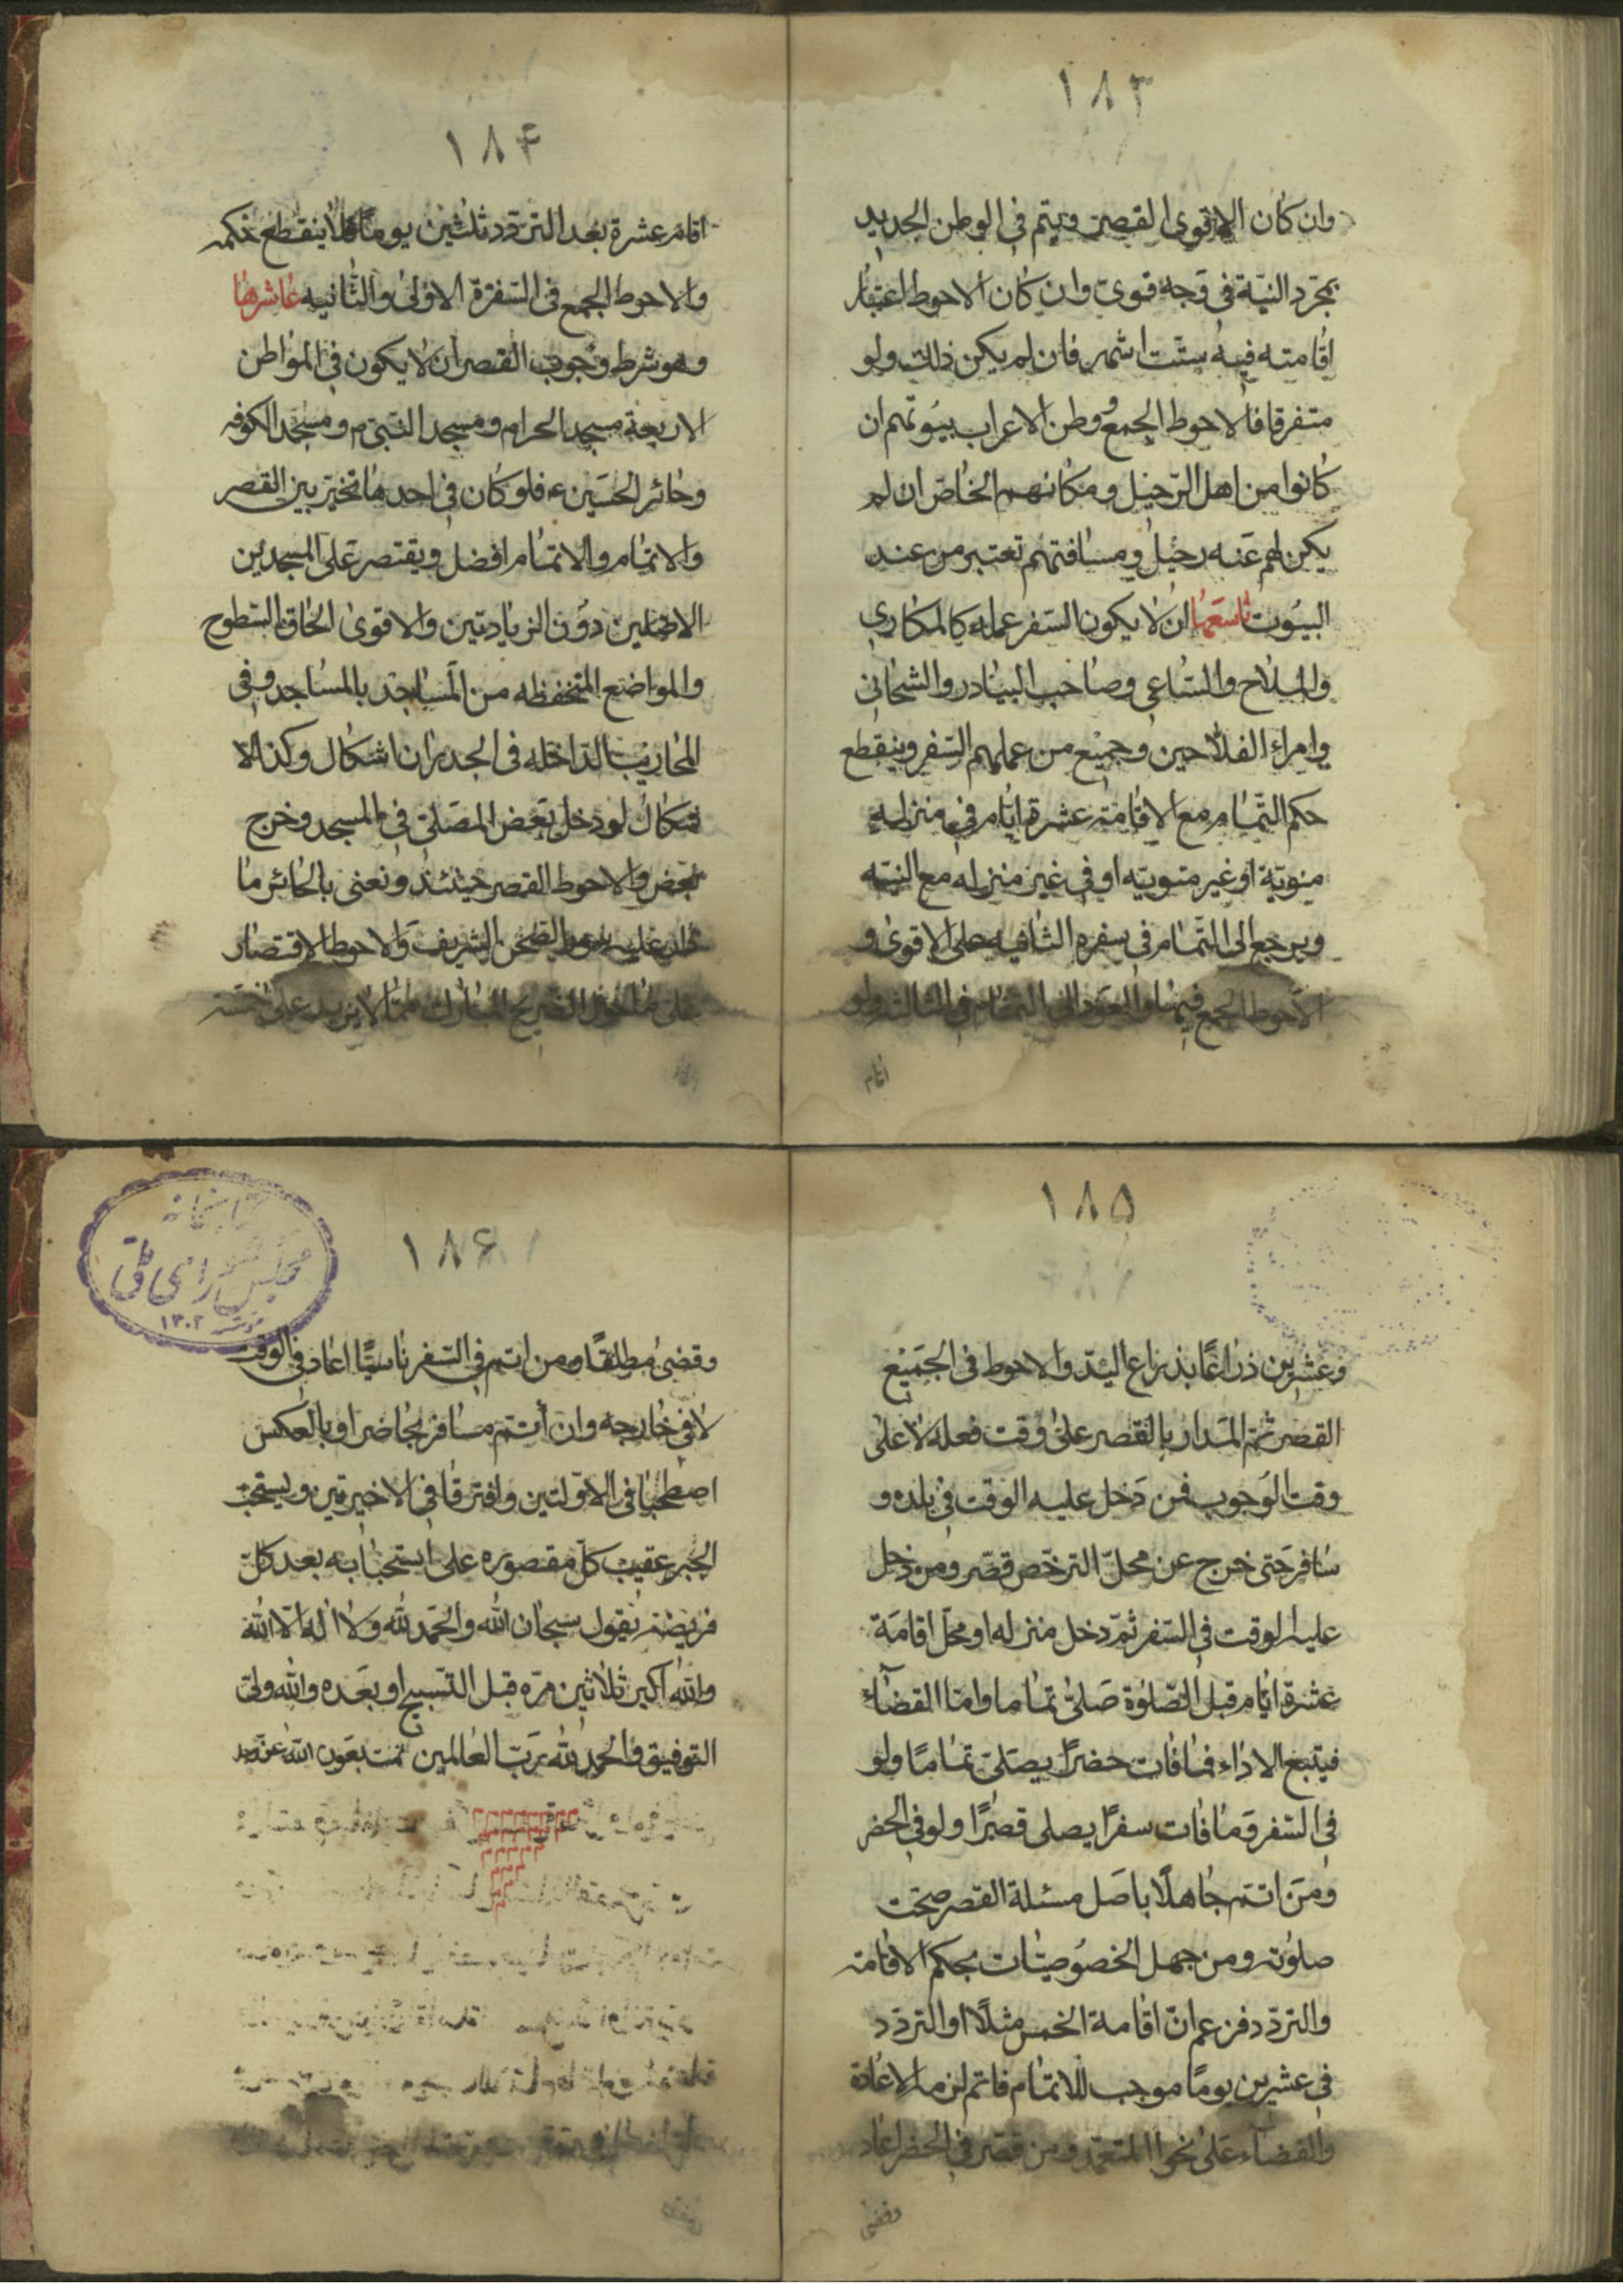 ١٨٣
وان كان الاقوى القصر ويتم فى الوطن الجديد
بمجرد النيّة فى وجه قوىّ وان كان الاحوط اعتبار
اقامته فيه ستّت اشهر فان لم يكن ذلك ولو
متفرقا فالاحوط الجمع ووطن الاعراب بيوتهم ان
كانوا من اهل الترحيل ومكانهم الخاصّ ان لم
يكن لهم عنه رحيل ومسافتهم تعتبر من عند
البيوت تاسعها ان لا يكون السّفر عمله كالمكارى
والملاح والسّاعى وصاحب البيادر والشحانى
وامراء الفلّاحين وجميع من عملهم السّفر وينقطع
حكم التّمام مع الاقامة عشرة ايّام فى منزله
منويّة او غير منويّه او فى غير منزله مع النيّه
ويرجع الى التّمام فى سفره الثّانيه على الاقوى و
الاحوط الجمع فيها والعود الى التمام فى الثالثه ولو
اقام
١٨۴
اقام عشرة بعد التردّد ثلثين يوما فلا ينقطع حكمه
والاحوط الجمع فى السّفرة الاولى والثّانيه عاشرها
وهو شرط وجوب القصر ان لا يكون فى المواطن
الاربعة مسجد الحرام ومسجد النّبىّ م ومسجد الكوفه
وحائر الحسين ع فلو كان فى احدها تخيّر بين القصر
والاتمام والاتمام افضل ويقتصر على المسجدين
الاصليين دون الزيادتين والاقوى الحاق السّطوح
والمواضع المنخفظه من المساجد بالمساجد وفى
المحاريب الداخله فى الجدران اشكال وكذا الا
شكال لو دخل بعض المصلّى فى المسجد وخرج
بعض والاحوط القصر حينئذ ونعنى بالحائر ما
دار عليه سور الصّحن الشّريف والاحوط الاقتصار
على ما حول الضّريح المبارك ممّا لا يزيد على خمسه
١٨۵
وعشرين ذراعًا بذراع اليد والاحوط فى الجميع
القصر ثمّ المدار بالقصر على وقت فعله لا على
وقت الوجوب فمن دخل عليه الوقت فى بلده و
سافر حتى خرج عن محلّ الترخّص قصّر ومن دخل
عليه الوقت فى السّفر ثمّ دخل منزله او محلّ اقامة
عشرة ايّام قبل الصّلوة صلّى تماما وامّا القضاء
فيتبع الاداء فما فات حضرًا يصلّى تمامًا ولو
فى السّفر وما فات سفرًا يصلى قصرًا ولو فى الحضر
ومن اتمّ جاهلًا باصل مسئلة القصر صحّت
صلوته ومن جهل الخصوصيّات بحكم الاقامة
والتردّد فزعم انّ اقامة الخمس مثلًا او التردّد
فى عشرين يومًا موجب للاتمام فاتم لزم الاعادة
والقضاء على نحو المتعمّد ومن قصّر فى الحضر اعاد
وقضى
١٨۶
كتابخانه
مجلس شوراى ملى
١٣٠٢
وقضى مطلقًا ومن اتم فى السّفر ناسيًا اعاد فى الوقت
لا فى خارجه وان أتتمّ مسافر بحاضر او بالعكس
اصطحبا فى الاوّلتين وافترقا فى الاخيرتين ويستحبّ
الجبر عقيب كلّ مقصوره على استحبابه بعد كلّ
فريضة يقول سبحان الله والحمد لله ولا اله الّا الله
والله اكبر ثلاثين مرّه قبل التّسبيح او بعده والله ولىّ
التوفيق والحمد لله ربّ العالمين تمت بعون الله